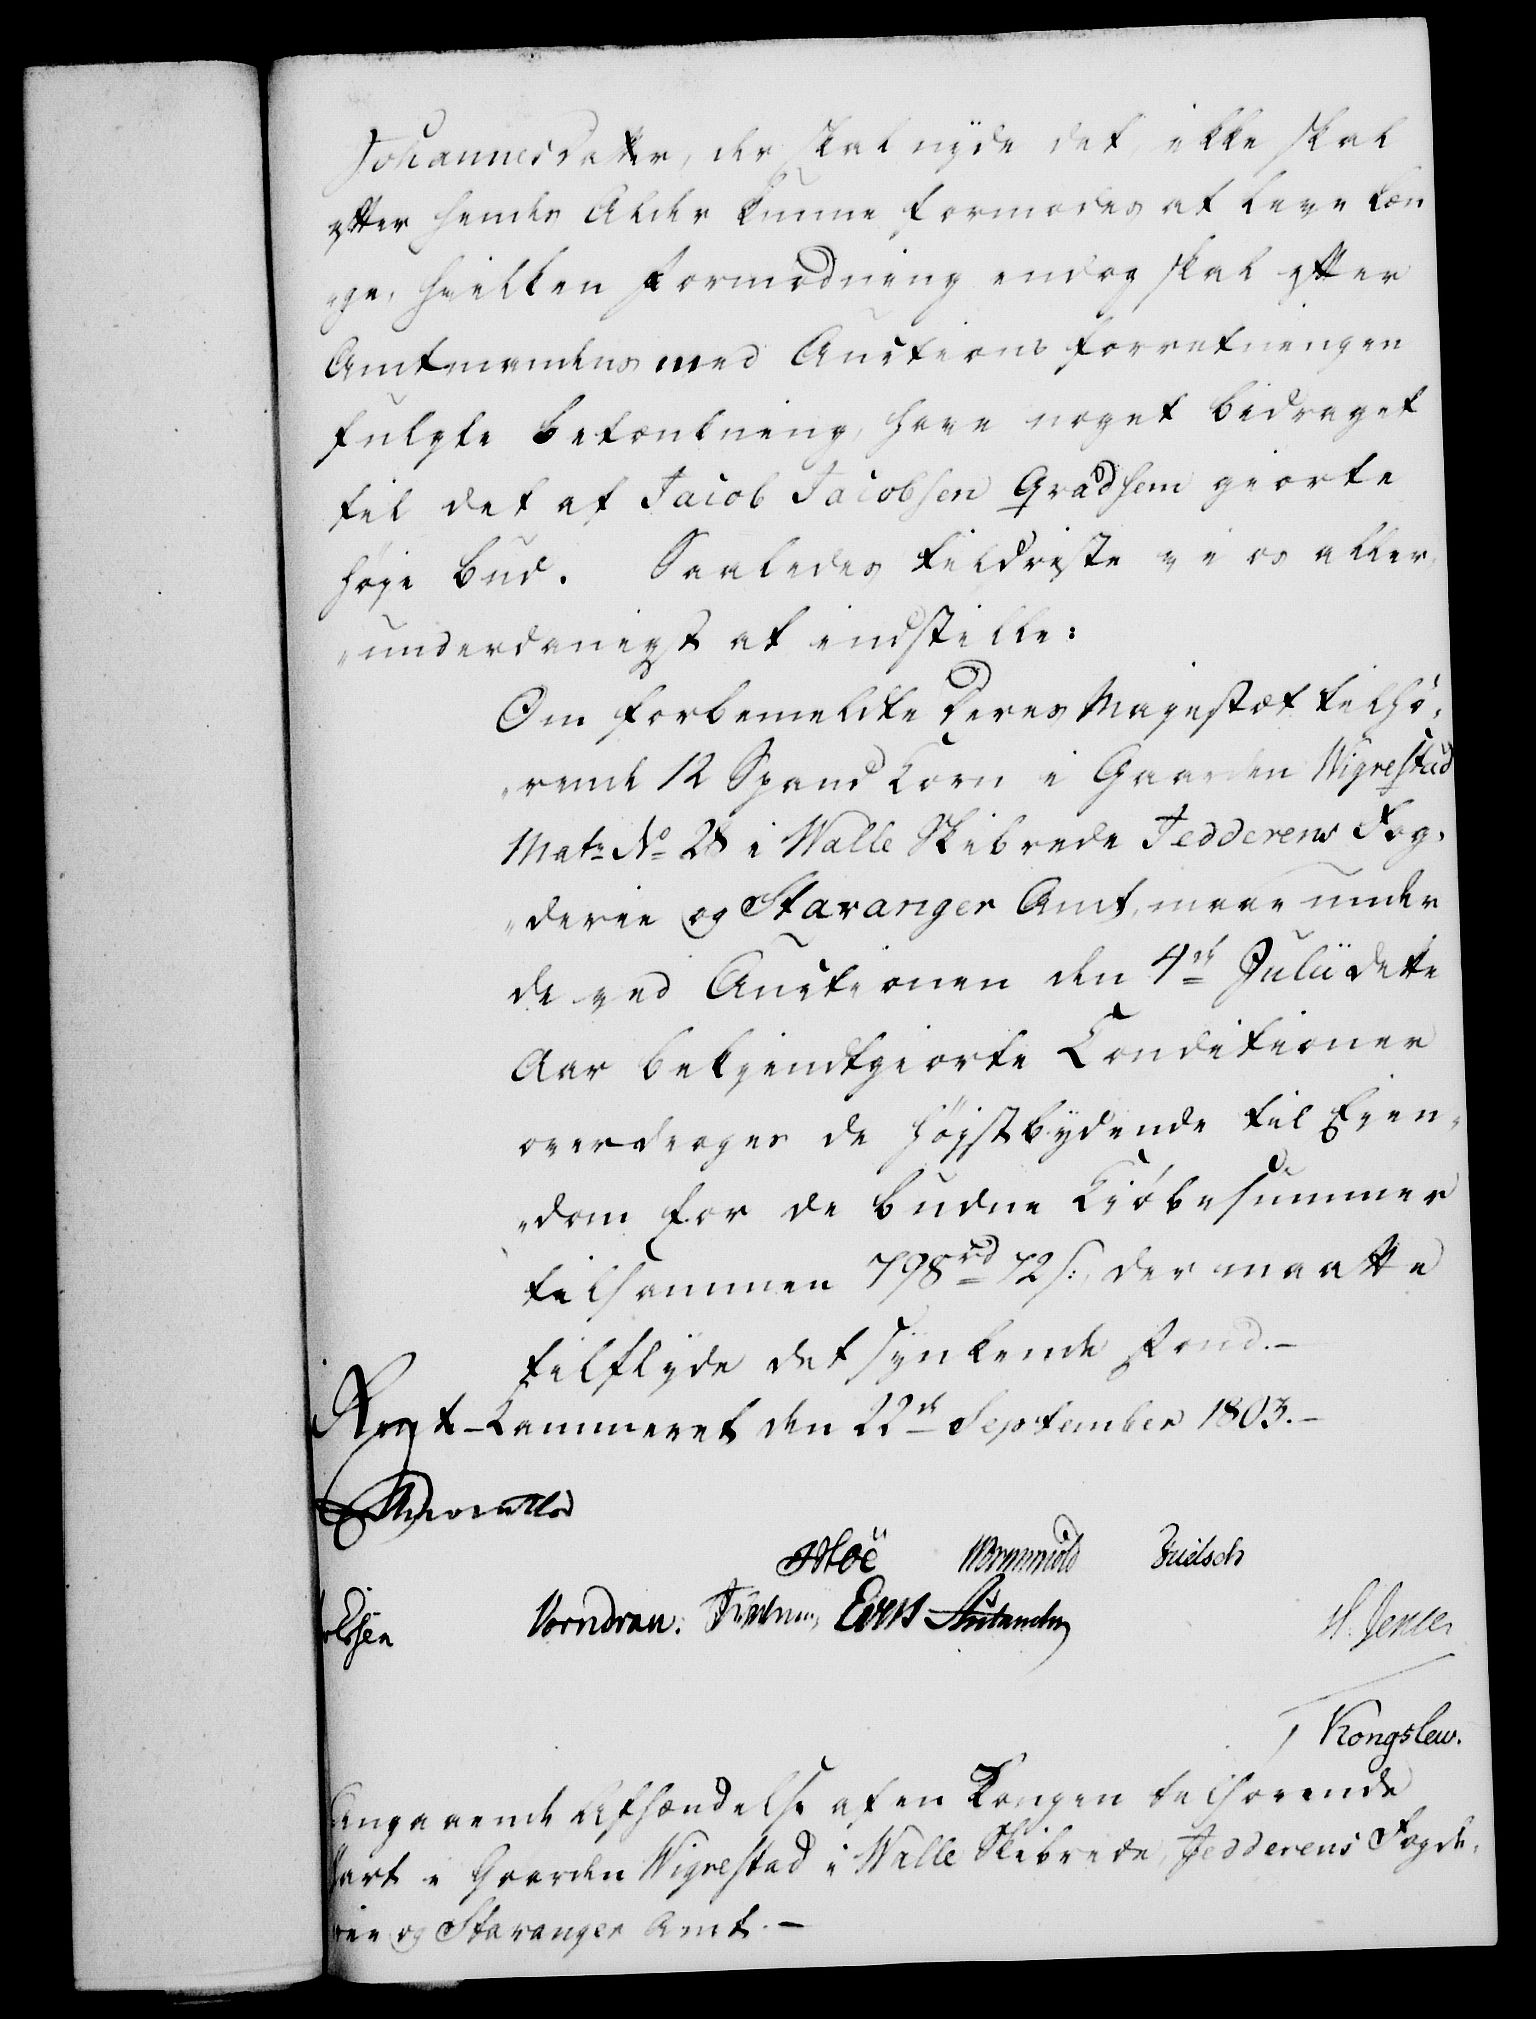 Johannesdatter, der skal nyde det, ikke skal
efter hendes Alder kunne formodes at leve læn
ge, hvilken Formodning endog skal efter
Amtmandens med Auctions Forretningen
fulgte Betænkning, have noget bidraget
til det af Jacob Jacobsen Qvadsem giorte
høje Bud. Saaledes tildriste vi os aller,
„underdanigst at indstille:
Om forbemeldte Deres Majestæt tilhø,
„rende 12 Spand Korn i Gaarden Wigrestad
Matr No 28 i Walle Skibrede Jedderens Fog,
„derie og Stavanger Amt, maae under
de ved Auctionen den 4de Julii dette
Aar bekjendtgiorte Conditioner
overdrages de Højstbydende til Ejen,
„dom for de budne Kiøbesummer
tilsammen 798 rd 72 s:, der maatte
tilflyde det synkende Fond.-
Rent-Kammeret den 22de September 1803.-
Moë Wormskiold
Vorndran.
H. Jensen
Kongslew.
Angaaende Afhændelse af en Kongen tilhørende
Part i Gaarden Wigrestad i Walle Skibrede, Jedderens Fogde,
rie og Stavanger Amt.-